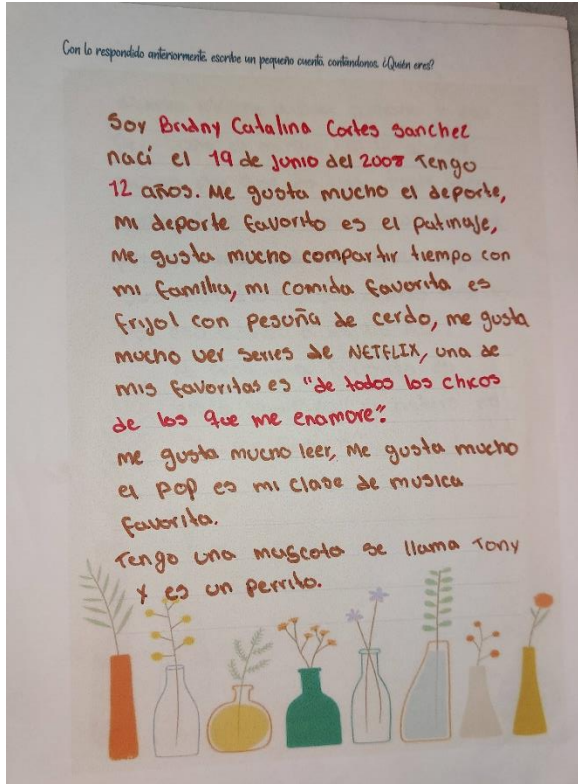 Con lo respondido anteriormente, escribe un pequeño cuento, contándonos ¿Quién eres?
Soy Bridny Catalina Cortes Sanchez
nací el 19 de Junio del 2008 Tengo
12 años. Me gusta mucho el deporte,
mi deporte favorito es el patinaje,
Me gusta mucho compartir tiempo con
mi familia, mi comida favorita es
frijol con pesuña de cerdo, me gusta
mucho ver series de NETFLIX, una de
mis favoritas es "de todos los chicos
de los que me enamore".
me gusta mucho leer, Me gusta mucho
el Pop es mi clase de musica
favorita.
Tengo una mascota se llama Tony
y es un perrito.